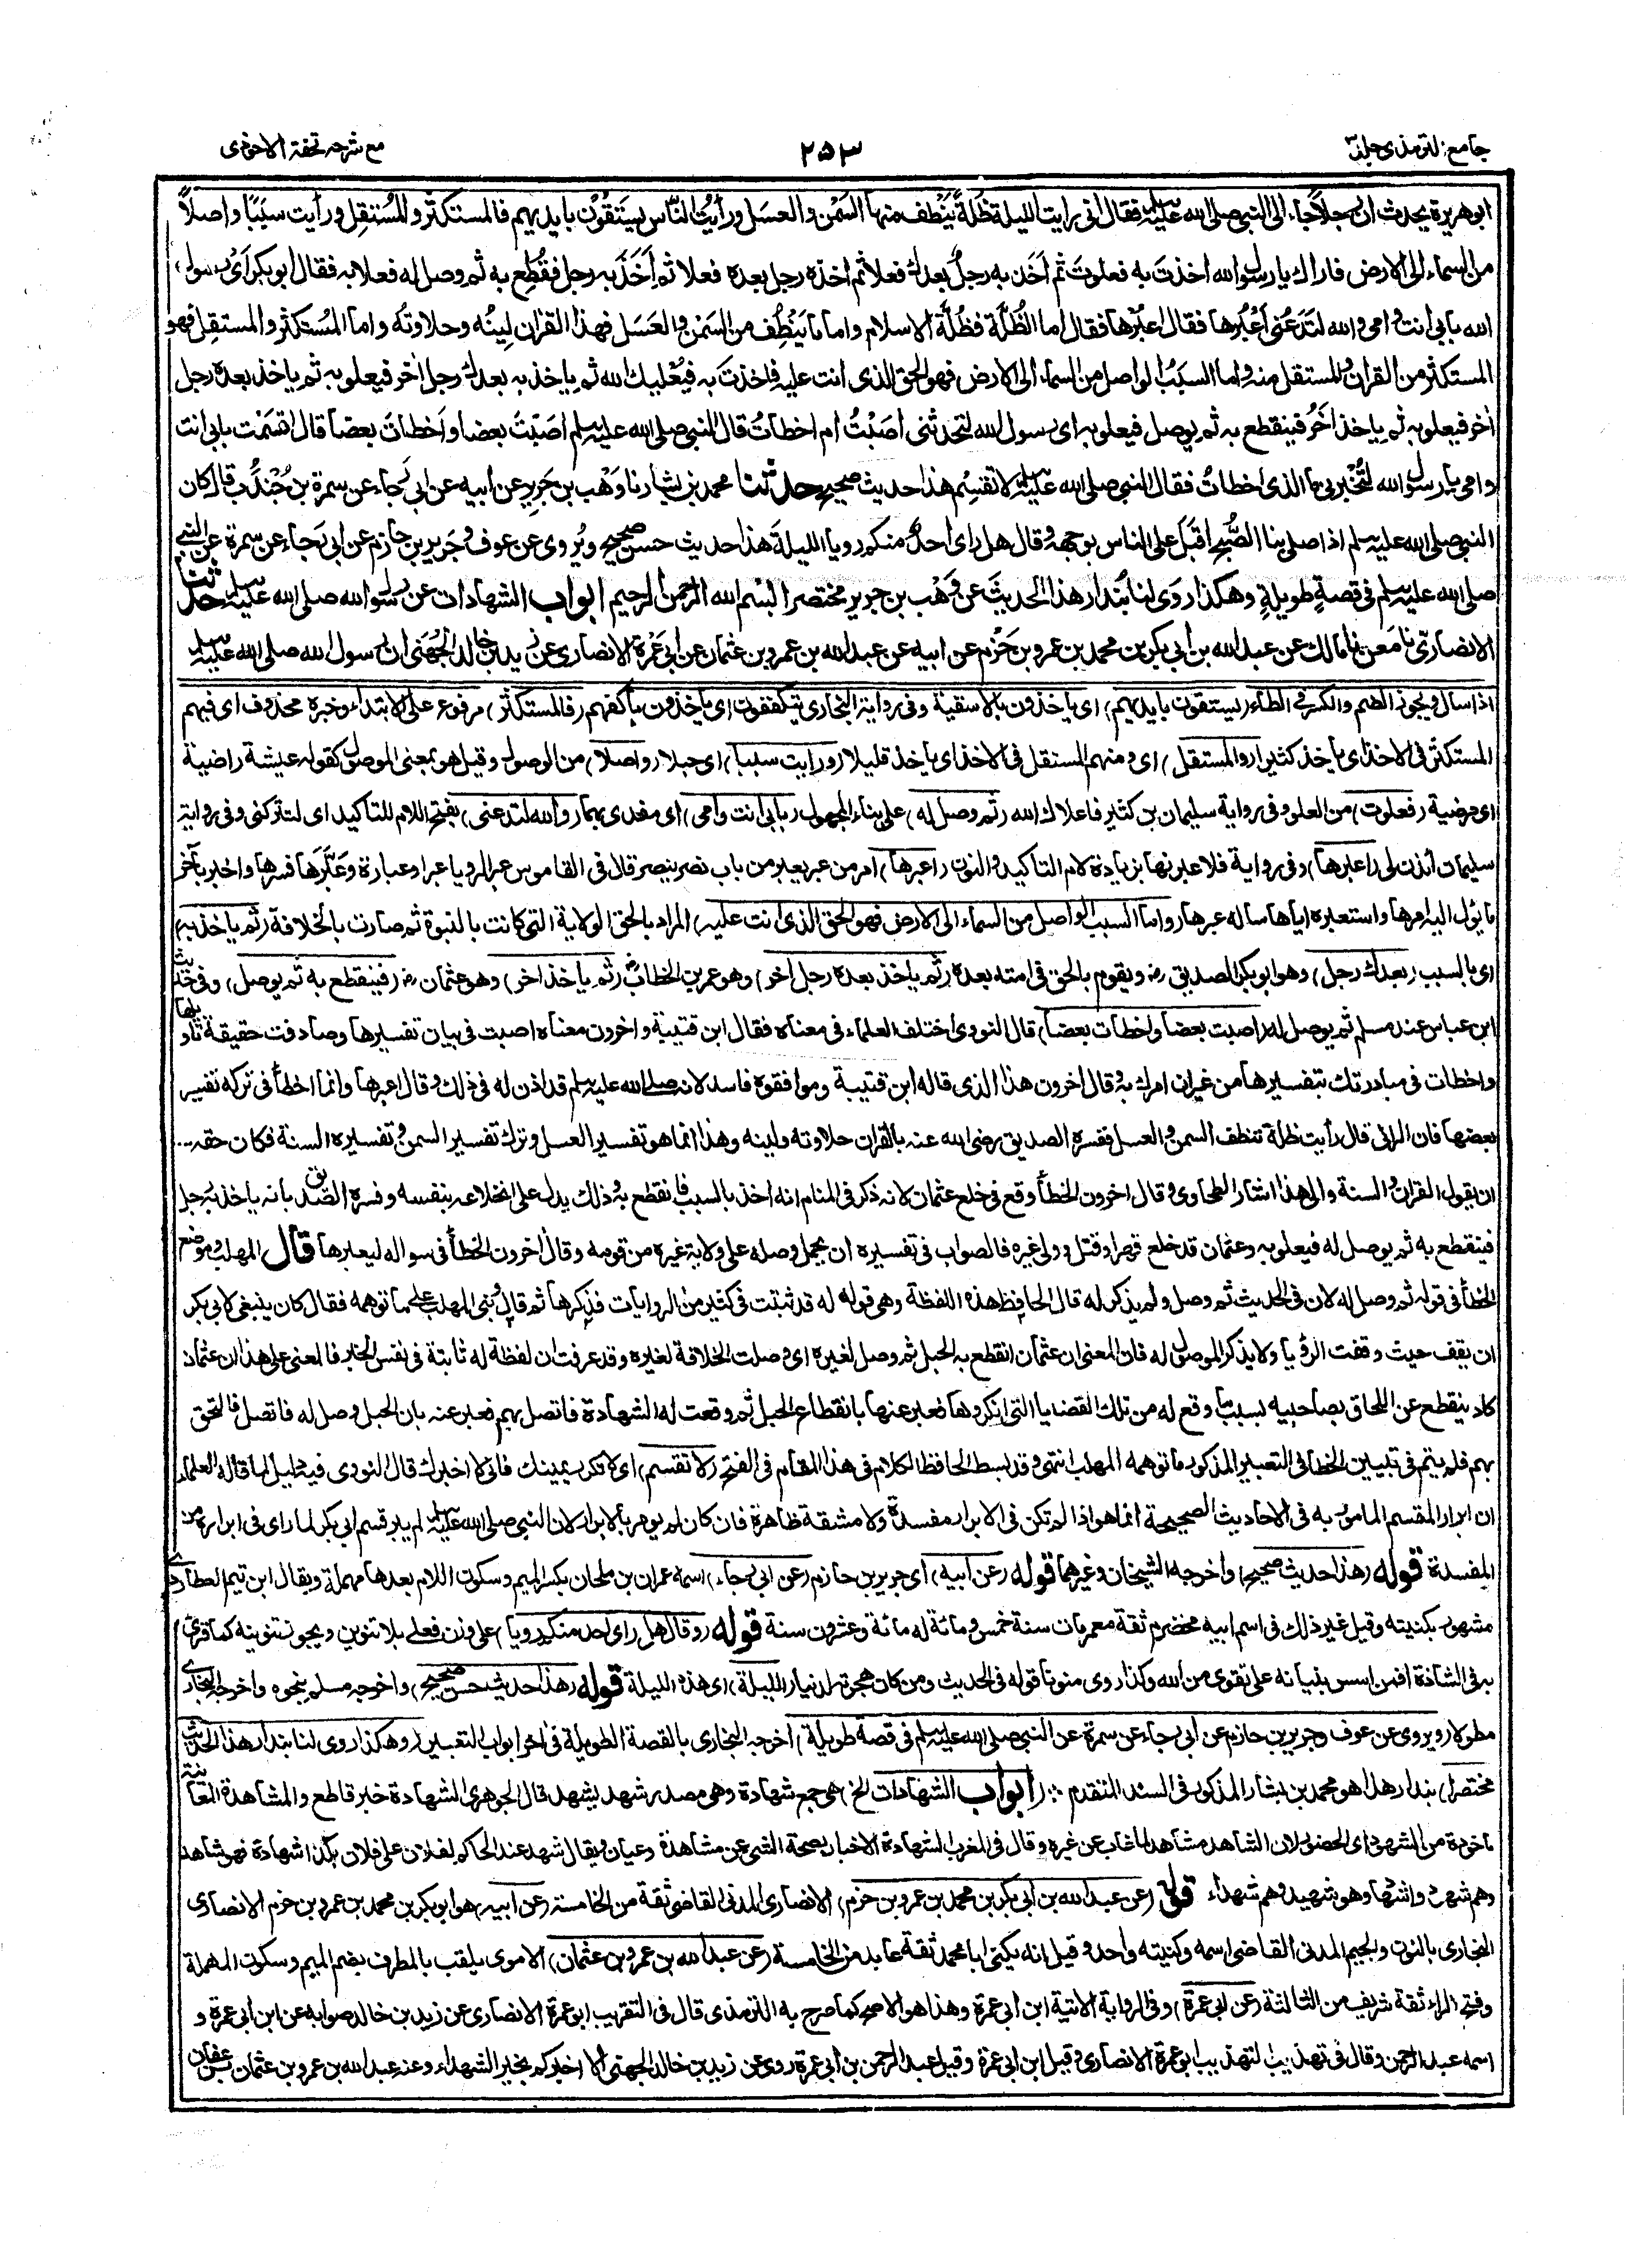 جامع الترمذی جلد۳
۲۵۳
مع شرحہ تحفۃ الاحوذی
ابوهریرة یحدث ان رجلاً جاء الی النبی صلی الله علیه وسلم فقال انی رایت اللیلة ظُلَّةً یَنْطُف منها السَمْن والعسَل ورأیتُ النّاس یستَقُوْن بایدیهم فالمستکثر والمُستقِل ورأیت سبَبًا واصلاً
من السماء الی الارض فاراك یا رسول الله اخذتَ به فعلوتَ ثم اَخَذ به رجلٌ بعدك فعلا ثم اخذه رجل بعده فعلا ثم اَخَذَ به رجل فقُطِع به ثم وصل له فعلا به فقال ابوبکر اَیْ رسول
الله بابی انت وامی والله لتَدَعُنی اَعْبُرها فقال اعبُرْها فقال اما الظُّلَّة فظُلَّة الاسلام واما ما یَنْطُف من السَمْن والعَسَل فهذا القران لِینُه وحلاوتُه واما المُستکثر والمستقِل فهو
المستکثر من القران والمستقل منه واما السبَبُ الواصل من السماء الی الارض فهو الحق الذی انت علیه فاخذتَ به فیُعْلیك الله ثم یاخذ به بعدك رجل اٰخر فیعلو به ثم یاخذ بعده رجل
اٰخر فیعلو به ثم یاخذ اٰخَرُ فینقطع به ثم یوصل فیعلو به ای رسول الله لتحدثنی اَصَبْتُ ام اخطأتُ قال النبی صلی الله علیه وسلم اَصَبْتَ بعضا واَخطأتَ بعضا قال اقسَمْت بابی انت
وامی یا رسول الله لتُخْبِرنی ما الذی اخطأتُ فقال النبی صلی الله علیه وسلم لا تقسِم هذا حدیث صحیح حدثنا محمد بن بشار نا وَهْب بن جَرِیر عن ابیه عن ابی رَجاء عن سمرة بن جُنْدُب قال کان
النبی صلی الله علیه وسلم اذا صلی بنا الصُّبح اقبَلَ علی الناس بوجهه وقال هل رای احدٌ منکم رویا اللیلةَ هذا حدیث حسن صحیح ویُروی عن عوف وجَرِیر بن حازم عن ابی رَجاء عن سمرة عن النبی
صلی الله علیه وسلم فی قصةٍ طویلةٍ وهکذا روٰی لنا بُندار هذا الحدیثَ عن وَهْب بن جریر مختصرا بسم الله الرحمن الرحیم ابواب الشهادات عن رسول الله صلی الله علیه وسلم حدثنا
الانصاریّ نا مَعن نا مالك عن عبد الله بن ابی بکر بن محمد بن عمرو بن حَزْم عن ابیه عن عبد الله بن عمرو بن عثمان عن ابی عَمْرة الانصاری عن زید بن خالد الجُهَنی ان رسول الله صلی الله علیه وسلم
اذا سال ویجوز الضم والکسر فی الطاء (یستقون بایدیهم) ای یاخذون بالاسقیة وفی روایة البخاری یتکففون ای یاخذون باکفهم (فالمستکثر) مرفوع علی الابتداء وخبره محذوف ای فیهم
المستکثر فی الاخذ ای یاخذ کثیرا (والمستقل) ای ومنهم المستقل فی الاخذ ای یاخذ قلیلا (ورایت سببا) ای حبلا (واصلا) من الوصول وقیل هو بمعنی الموصول کقوله عیشة راضیة
ای مرضیة (فعلوت) من العلو وفی روایة سلیمان بن کثیر فاعلاك الله (ثم وصل له) علی بناء المجهول (بابی انت وامی) ای مفدی بهما (والله لتدعنی) بفتح اللام للتاکید ای لتترکنی وفی روایة
سلیمان ائذن لی (اعبرها) وفی روایة فلاعبرنها بزیادة لام التاکید والنون (اعبرها) امر من عبر یعبر من باب نصر ینصر قال فی القاموس عبر الرویا عبرا وعبارة وعَبَّرَها فسرها واخبر بآخر
ما یؤل الیه امرها واستعبره ایاها ساله عبرها (واما السبب الواصل من السماء الی الارض فهو الحق الذی انت علیه) المراد بالحق الولایة التی کانت بالنبوة ثم صارت بالخلافة (ثم یاخذ به)
ای بالسبب (بعدك رجل) وهو ابوبکر الصدیق رض ویقوم بالحق فی امته بعده (ثم یاخذ بعده رجل اخر) وهو عمر بن الخطاب رض (ثم یاخذ اخر) وهو عثمان رض (فینقطع به ثم یوصل) وفی حدیث
ابن عباس عند مسلم ثم یوصل له (اصبت بعضا واخطات بعضا) قال النووی اختلف العلماء فی معناه فقال ابن قتیبة واخرون معناه اصبت فی بیان تفسیرها وصادفت حقیقة تاویلها
واخطات فی مبادرتك بتفسیرها من غیر ان امرك به وقال اخرون هذا الذی قاله ابن قتیبة وموافقوه فاسد لانه صلی الله علیه وسلم قد اذن له فی ذلك وقال اعبرها وانما اخطأ فی ترکه تفسیر
بعضها فان الرائی قال رأیت ظلة تنطف السمن والعسل ففسره الصدیق رضی الله عنه بالقران حلاوته ولینه وهذا انما هو تفسیر العسل وترك تفسیر السمن وتفسیره السنة فکان حقه
ان یقول القران والسنة والی هذا اشار الطحاوی وقال اخرون الخطأ وقع فی خلع عثمان لانه ذکر فی المنام انه اخذ بالسبب فانقطع به وذلك یدل علی انخلاعه بنفسه وفسره الصدیق بانه یاخذ به رجل
فینقطع به ثم یوصل له فیعلو به وعثمان قد خلع قهرا وقتل وولی غیره فالصواب فی تفسیره ان یحمل وصله علی ولایة غیره من قومه وقال اخرون الخطأ فی سواله لیعبرها قال المهلب وموضع
الخطأ فی قوله ثم وصل له لان فی الحدیث ثم وصل ولم یذکر له قال الحافظ هذه اللفظة وهی قوله له قد ثبتت فی کثیر من الروایات فذکرها ثم قال وبنی المهلب علی ما توهمه فقال کان ینبغی لابی بکر
ان یقف حیث وقفت الرؤیا ولا یذکر الموصول له فان المعنی ان عثمان انقطع به الحبل ثم وصل لغیره ای وصلت الخلافة لغیره وقد عرفت ان لفظة له ثابتة فی نفس الخبر فالمعنی علی هذا ان عثمان
کاد ینقطع عن اللحاق بصاحبیه بسبب ما وقع له من تلك القضایا التی انکروها فعبر عنها بانقطاع الحبل ثم وقعت له الشهادة فاتصل بهم فعبر عنه بان الحبل وصل له فاتصل فالتحق
بهم فلم یتم فی تبیین الخطأ فی التعبیر المذکور ما توهمه المهلب انتهی وقد بسط الحافظ الکلام فی هذا المقام فی الفتح (لا تقسم) ای لا تکرر یمینك فانی لا اخبرك قال النووی فیه دلیل لما قاله العلماء
ان ابرار المقسم المامور به فی الاحادیث الصحیحة انما هو اذا لم تکن فی الابرار مفسدة ولا مشقة ظاهرة فان کان لم یومر بالابرار لان النبی صلی الله علیه وسلم لم یبر قسم ابی بکر لما رای فی ابراره من
المفسدة قوله (هذا حدیث صحیح) واخرجه الشیخان وغیرهما قوله (عن ابیه) ای جریر بن حازم (عن ابی رجاء) اسمه عمران بن ملحان بکسر المیم وسکون اللام بعدها مهملة ویقال ابن تیم العطاردی
مشهور بکنیته وقیل غیر ذلك فی اسم ابیه مخضرم ثقة معمر مات سنة خمس ومائة له مائة وعشرون سنة قوله (وقال هل رای احد منکم رویا) علی وزن فعلی بلا تنوین ویجوز تنوینه کما قرئ
به فی الشاذة افمن اسس بنیانه علی تقوی من الله وکذا روی منونا قوله فی الحدیث ومن کان هجرته لدنیا (اللیلة) ای هذه اللیلة قوله (هذا حدیث حسن صحیح) واخرجه مسلم بنحوه واخرجه البخاری
مطولا (ویروی عن عوف وجریر بن حازم عن ابی رجاء عن سمرة عن النبی صلی الله علیه وسلم فی قصة طویلة) اخرجه البخاری بالقصة الطویلة فی اخر ابواب التعبیر (وهکذا روی لنا بندار هذا الحدیث
مختصرا) بندار هذا هو محمد بن بشار المذکور فی السند المتقدم (ابواب الشهادات الخ) هی جمع شهادة وهی مصدر شهد یشهد قال الجوهری الشهادة خبر قاطع والمشاهدة المعاینة
ماخوذة من الشهود ای الحضور لان الشاهد مشاهد لما غاب عن غیره وقال فی المغرب الشهادة الاخبار بصحة الشئ عن مشاهدة وعیان ویقال شهد عند الحاکم لفلان علی فلان بکذا شهادة فهو شاهد
وهم شهود واشهاد وهو شهید وهم شهداء قوله (عن عبد الله بن ابی بکر بن محمد بن عمرو بن حزم) الانصاری المدنی القاضی ثقة من الخامسة (عن ابیه) هو ابوبکر بن محمد بن عمرو بن حزم الانصاری
النجاری بالنون والجیم المدنی القاضی اسمه وکنیته واحد وقیل انه یکنی ابا محمد ثقة عابد من الخامسة (عن عبد الله بن عمرو بن عثمان) الاموی یلقب بالمطرف بضم المیم وسکون المهملة
وفتح الراء ثقة شریف من الثالثة (عن ابی عمرة) وفی الروایة الاتیة ابن ابی عمرة وهذا هو الاصح کما صرح به الترمذی قال فی التقریب ابو عمرة الانصاری عن زید بن خالد صوابه عن ابن ابی عمرة و
اسمه عبد الرحمن وقال فی تهذیب التهذیب ابو عمرة الانصاری وقیل ابن ابی عمرة وقیل عبد الرحمن بن ابی عمرة روی عن زید بن خالد الجهنی الا اخبرکم بخیر الشهداء وعنه عبد الله بن عمرو بن عثمان بن عفان